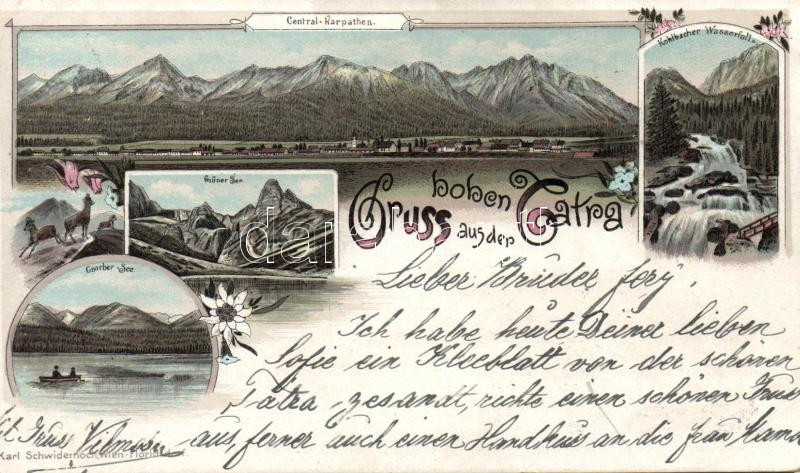 Central-Karpathen.
Kohlbacher Wasserfall.
Grüner See
Gruss aus der hohen Tatra
Csorber-See
Lieber Bruder fery,
Ich habe heute Deiner lieben
Sofie ein Kleeblatt von der schönen
Tátra gesandt, richte einen schönen Gruss
aus, ferner auch einen Handkuss an die frau Mama
Gruss Vilmos
Karl Schwidernoch, Wien-
darabanth